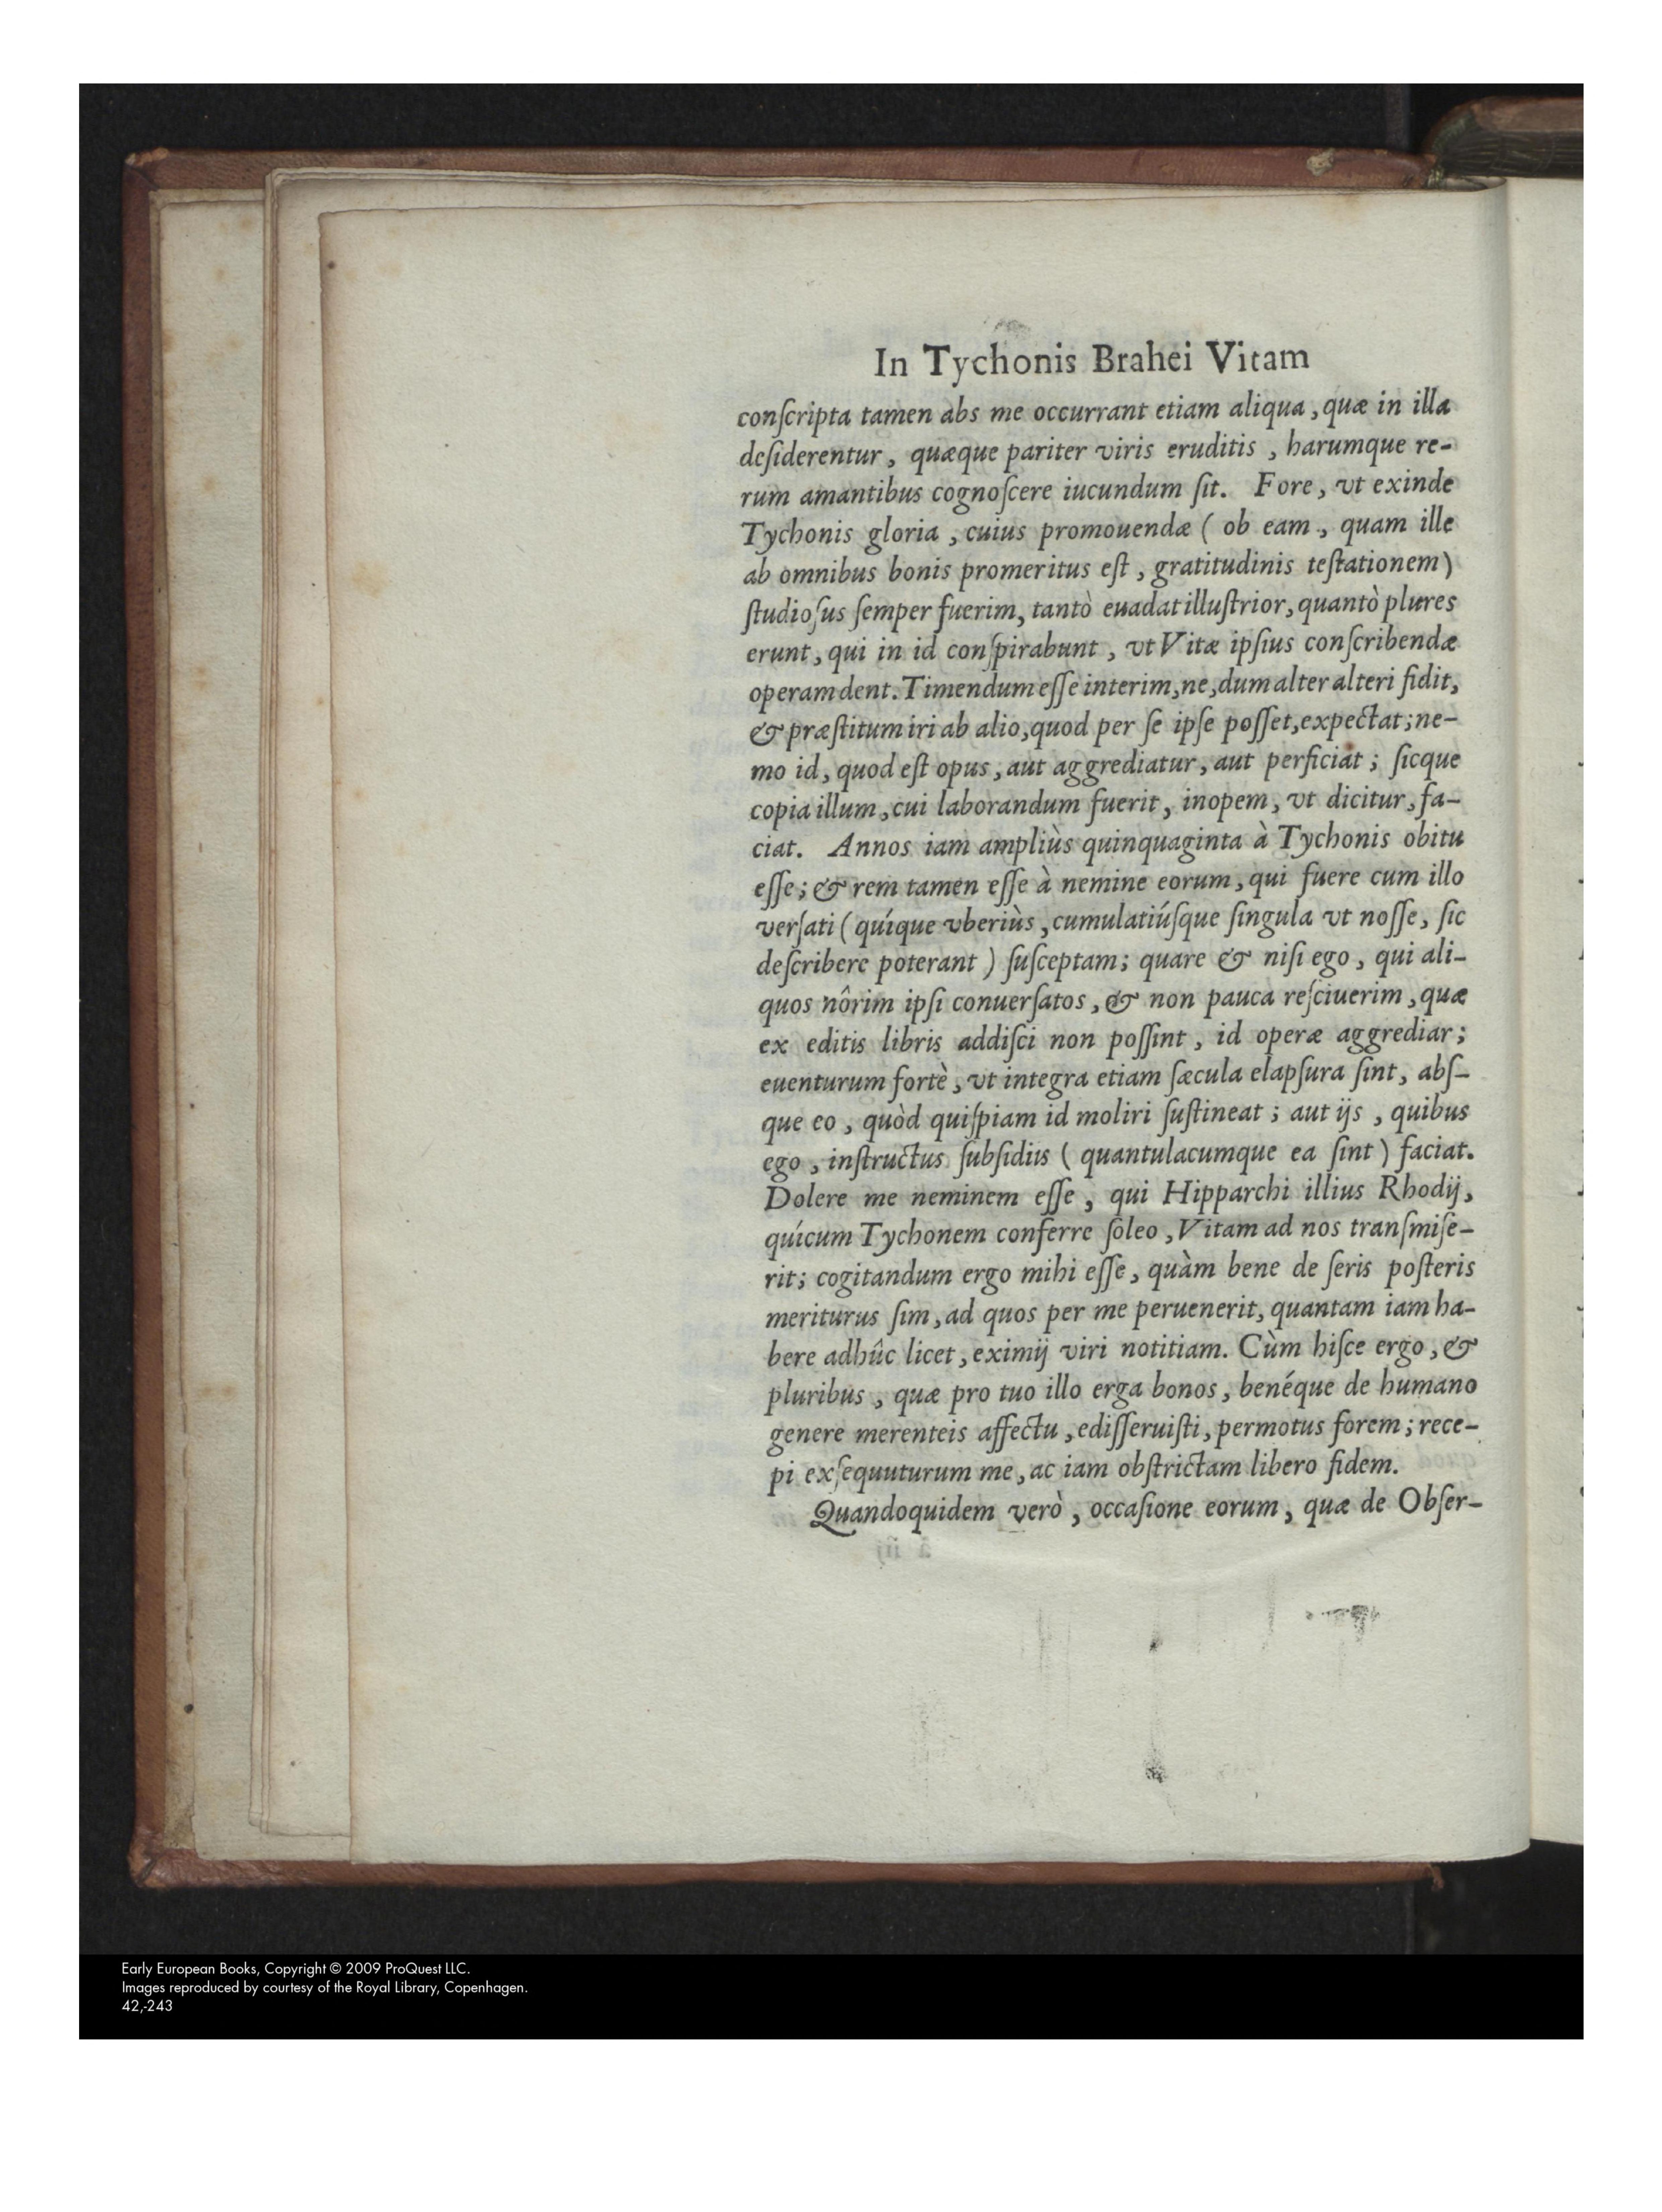 In Tychonis Brahei Vitam
conſcripta tamen abs me occurrant etiam aliqua, quæ in illa
deſiderentur, quæque pariter viris eruditis, harumque re-
rum amantibus cognoſcere iucundum ſit. Fore, vt exinde
Tychonis gloria, cuius promouendæ ( ob eam, quam ille
ab omnibus bonis promeritus eſt, gratitudinis teſtationem)
ſtudioſus ſemper fuerim, tantò euadat illuſtrior, quantò plures
erunt, qui in id conſpirabunt, vt Vitæ ipſius conſcribendæ
operam dent. Timendum eſſe interim, ne, dum alter alteri fidit,
& præſtitum iri ab alio, quod per ſe ipſe poſſet, expectat; ne-
mo id, quod eſt opus, aut aggrediatur, aut perficiat; ſicque
copia illum, cui laborandum fuerit, inopem, vt dicitur, fa-
ciat. Annos iam ampliùs quinquaginta à Tychonis obitu
eſſe; & rem tamen eſſe à nemine eorum, qui fuere cum illo
verſati ( quíque vberiùs, cumulatiúſque ſingula vt noſſe, ſic
deſcribere poterant ) ſuſceptam; quare & niſi ego, qui ali-
quos nôrim ipſi conuerſatos, & non pauca reſciuerim, quæ
ex editis libris addiſci non poſſint, id operæ aggrediar;
euenturum fortè, vt integra etiam ſæcula elapſura ſint, abſ-
que eo, quòd quiſpiam id moliri ſuſtineat; aut ijs, quibus
ego, inſtructus ſubſidiis ( quantulacumque ea ſint ) faciat.
Dolere me neminem eſſe, qui Hipparchi illius Rhodij,
quícum Tychonem conferre ſoleo, Vitam ad nos tranſmiſe-
rit; cogitandum ergo mihi eſſe, quàm bene de ſeris poſteris
meriturus ſim, ad quos per me peruenerit, quantam iam ha-
bere adhûc licet, eximij viri notitiam. Cùm hiſce ergo, &
pluribus, quæ pro tuo illo erga bonos, benéque de humano
genere merenteis affectu, ediſſeruiſti, permotus forem; rece-
pi exſequuturum me, ac iam obſtrictam libero fidem.
Quandoquidem verò, occaſione eorum, quæ de Obſer-
Early European Books, Copyright © 2009 ProQuest LLC.
Images reproduced by courtesy of the Royal Library, Copenhagen.
42,-243